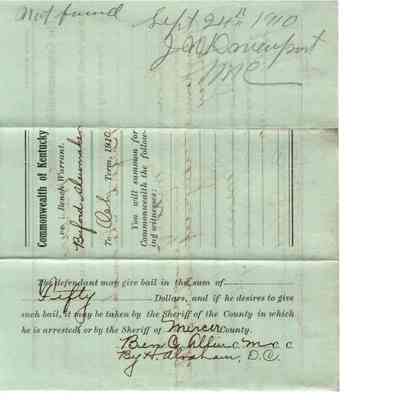 Not found
Sept 24th 1910
J. W. Davenport
M.C.
Commonwealth of Kentucky
vs. : Bench Warrant.
Buford Shewmaker
To Oct Term, 1910
You will summon for
Commonwealth the follow-
ing witnesses:
The defendant may give bail in the sum of
Fifty Dollars, and if he desires to give
such bail, it may be taken by the Sheriff of the County in which
he is arrested or by the Sheriff of Mercer County.
Ben C. Allin C M C C
By H. Abraham, D.C.